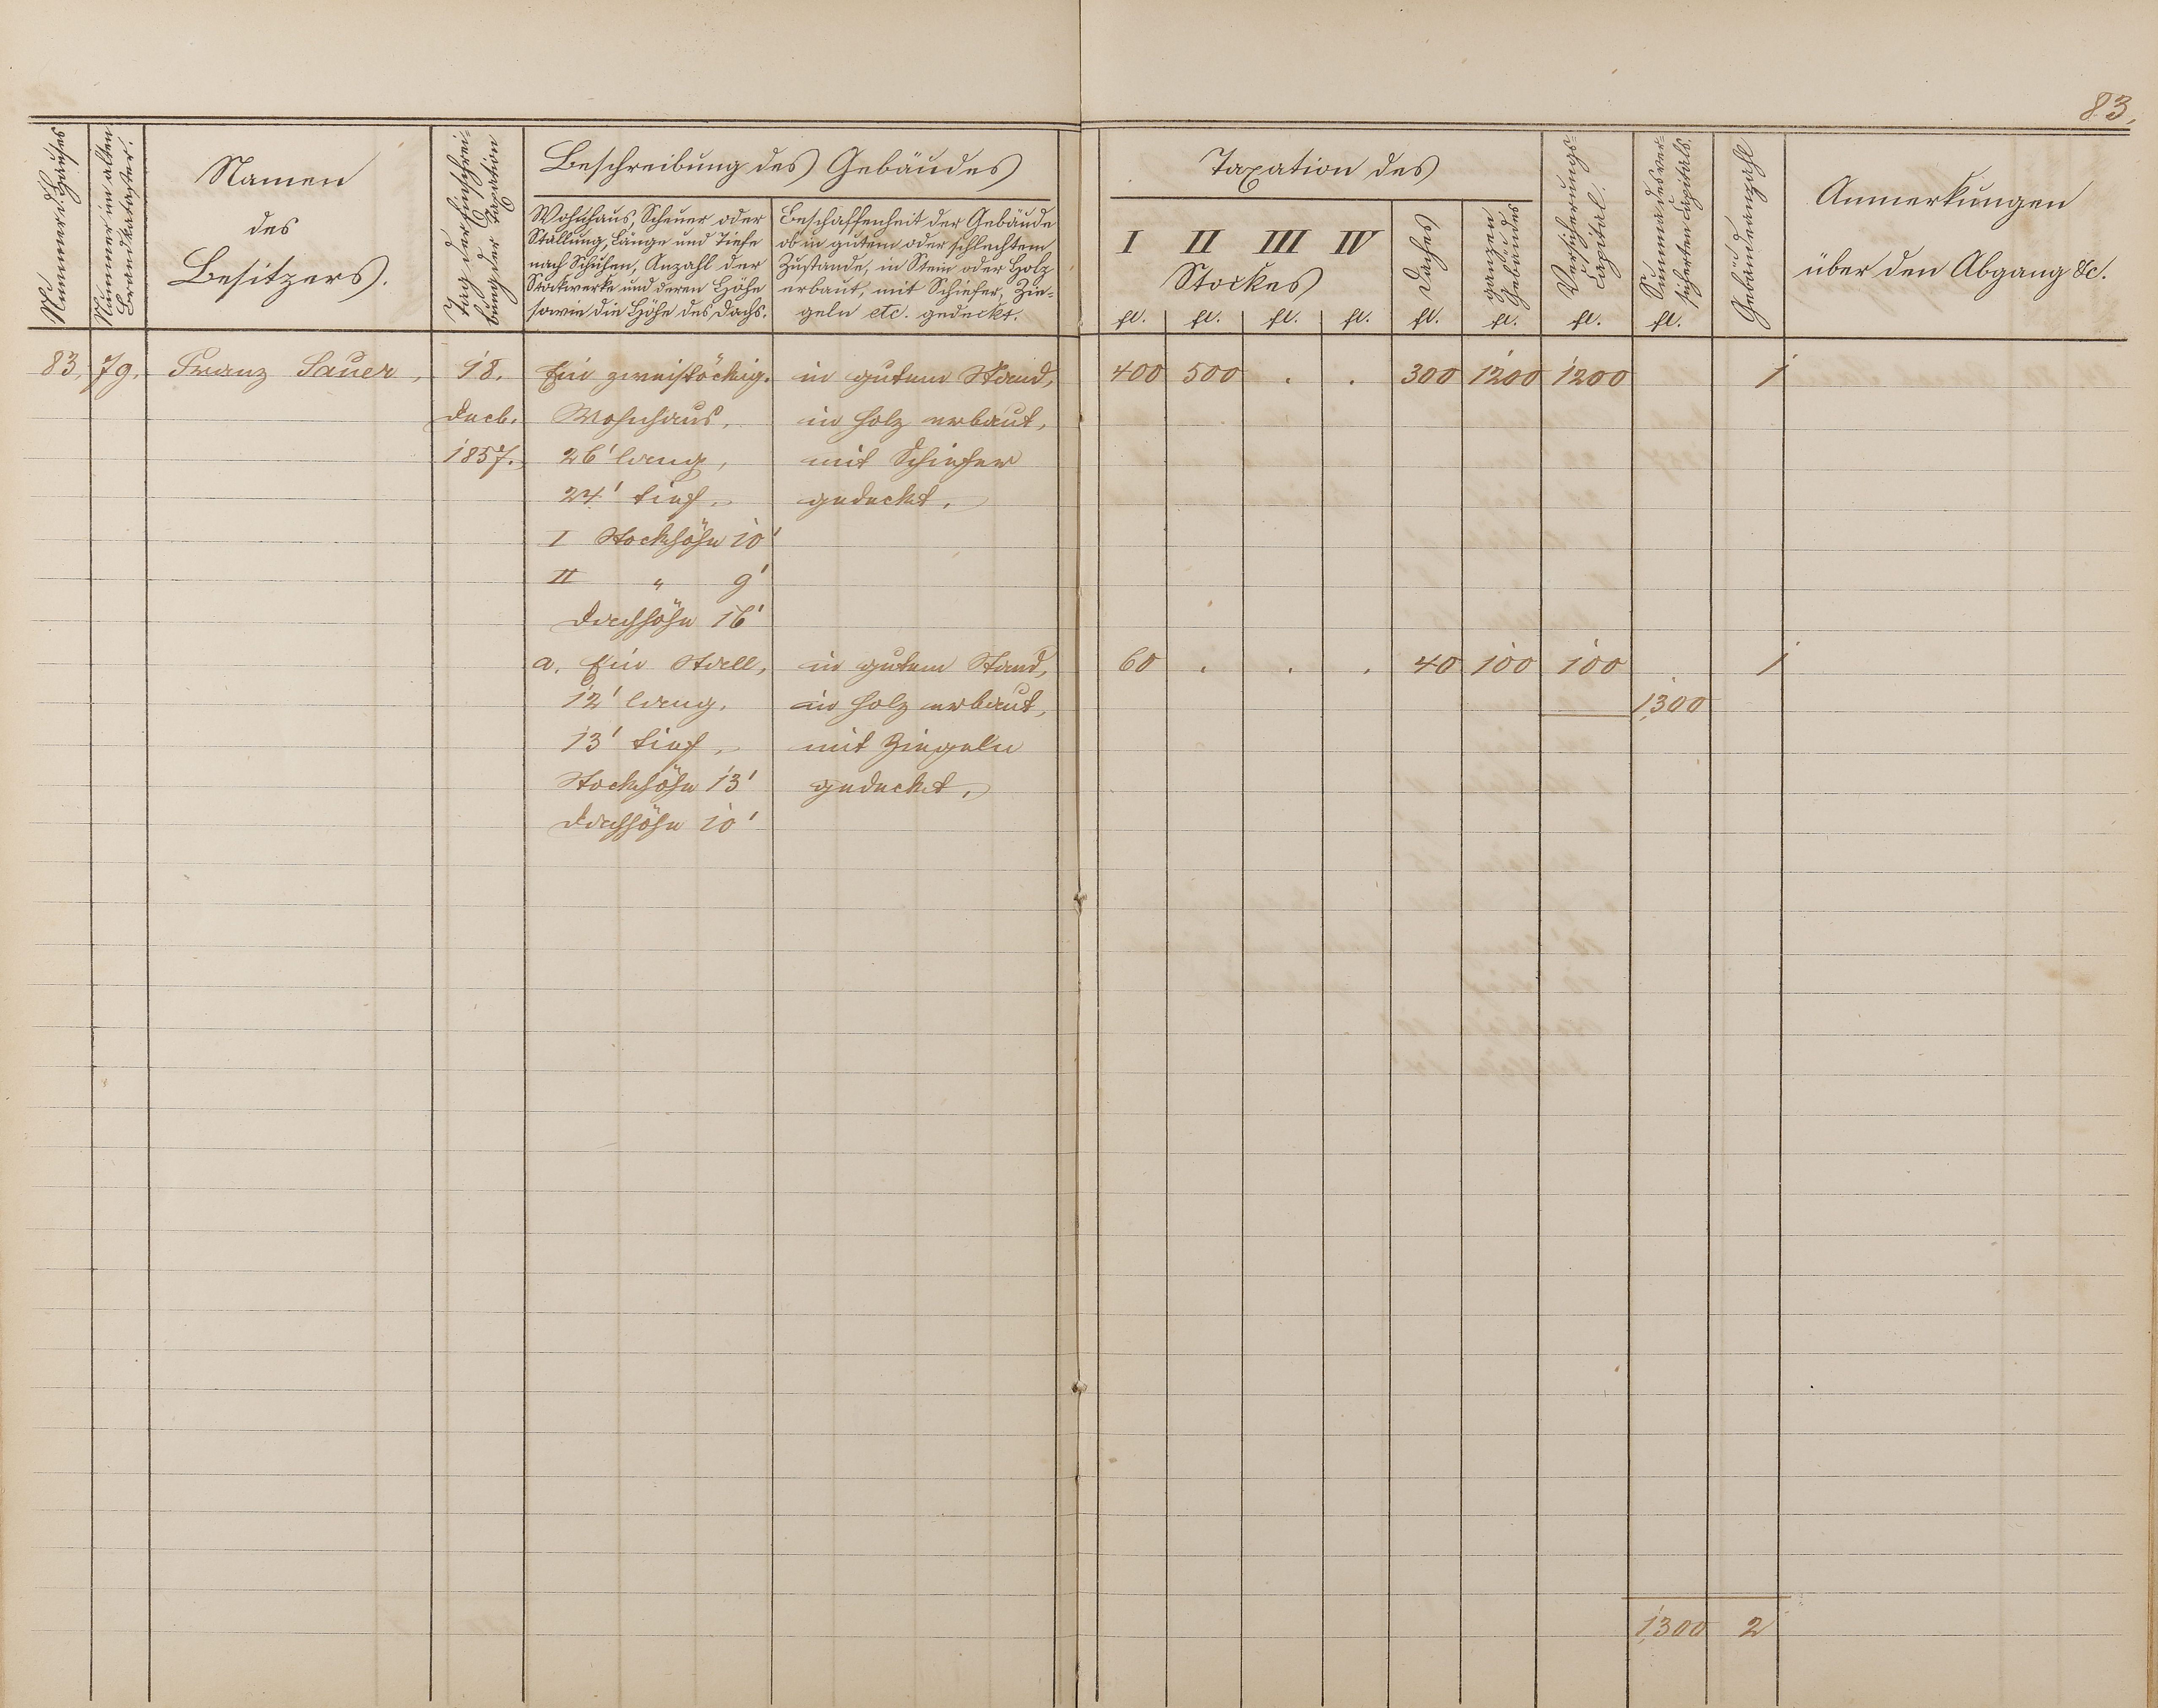 83.
Nummer d. Hauses
Nummer im alten
Brandkataster.
Namen
des
Besitzers.
Tag der Einschrei-
bung der Taxation
Beschreibung des Gebäudes
Wohnhaus, Scheuer oder
Stallung, Länge und Tiefe
nach Schuhen, Anzahl der
Stockwerke und deren Höhe
sowie die Höhe des Dachs.
Beschaffenheit der Gebäude
ob in gutem oder schlechtem
Zustande, in Stein oder Holz
erbaut, mit Schiefer, Zie-
geln etc. gedeckt.
Taxation des
I II III IV
Stockes
Daches
ganzen
Gebäudes
Versicherungs-
Capital.
Summa des ver-
sicherten Capitals.
Gebäudeanzahl
Anmerkungen
über den Abgang &c.
fl. fl. fl. fl. fl. fl. fl. fl.
83. 79. Franz Sauer, 18. Ein zweistöckig. in gutem Stand, 400 500 . . 300 1200 1200 1
Decb. Wohnhaus, in Holz erbaut,
1857. 26' lang, mit Schiefer
24' tief, gedeckt.
I Stockhöhe 10'
II " 9'
Dachhöhe 16'
a. Ein Stall, in gutem Stand, 60 . . . 40 100 100 1
12' lang, in Holz erbaut, 1,300
13' tief, mit Ziegeln
Stockhöhe 13' gedeckt.
Dachhöhe 10'
1,300 2